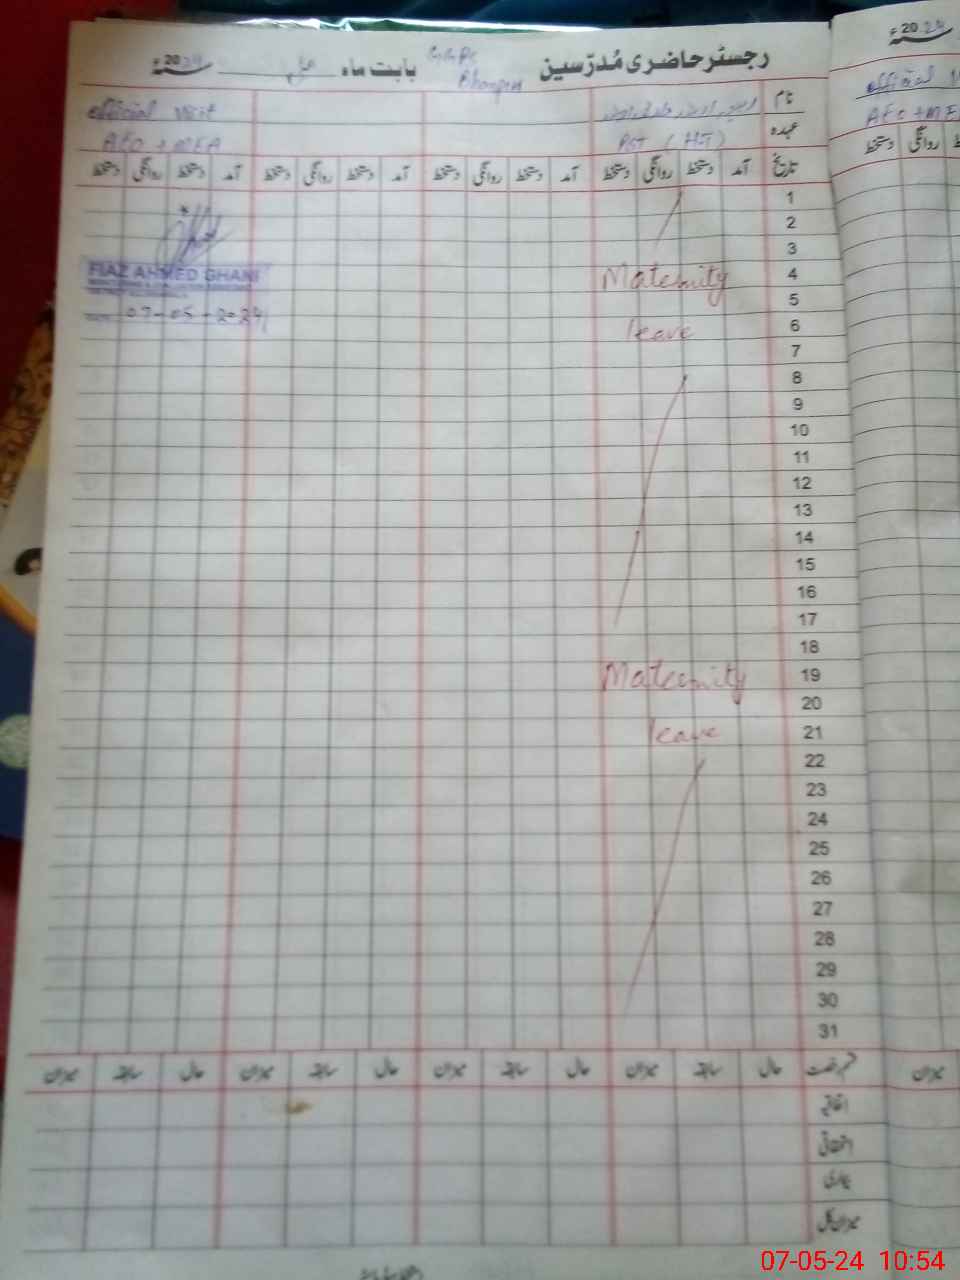 رجسٹر حاضری مُدرّسین
G.G.P.S
بابت ماہ مئی 2024ء
نام
Official Visit
عہدہ PST (HT)
AEO + MEA
تاریخ آمد دستخط روانگی دستخط آمد دستخط روانگی دستخط آمد دستخط روانگی دستخط آمد دستخط روانگی دستخط
1
2
3
4 Maternity
FIAZ AHMED GHANI
5
07-05-2024
6 leave
7
8
9
10
11
12
13
14
15
16
17
18
19 Maternity
20
21 leave
22
23
24
25
26
27
28
29
30
31
قسم رخصت حال سابقہ میزان حال سابقہ میزان حال سابقہ میزان حال سابقہ میزان
اتفاقیہ
استحقاقی
بیماری
میزان کل
2024ء
Official
AEO + ME
روانگی دستخط
میزان
07-05-24 10:54